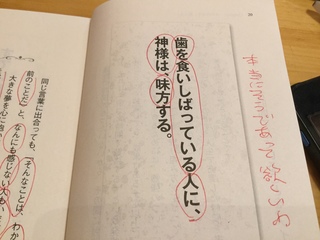 歯を食いしばっている人に、
神様は、味方する。
本当にそうであって欲しいわ
同じ言葉に出合っても、
前のことだ」と、なんにも感じない人もい
大きな夢を心に抱
「そんなことは、わか